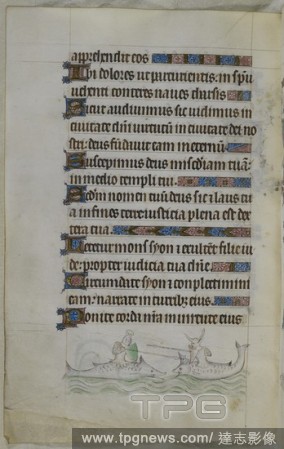 apprehendit eos
Ibi dolores ut parturientis: in spū
vehenti conteres naves tharsis
Sicut audivimus sic vidimus in
civitate dn̄i virtutū in civitate dei no
stri: deus fūdavit eam in eternū
Suscepimus deus misc̄diam tuā:
in medio templi tui
Scd̄m nomen tuū deus sic ⁊ laus tu
a in fines terre: iusticia plena est dex
tera tua
Letetur mons syon ⁊ exultēt filie iu
de: propter iudicia tua dn̄e
Circumdate syon ⁊ complectimini
eam: narrate in turribȝ eius
Ponite corda vr̄a in virtute eius
TPG
www.tpgnews.com/達志影像